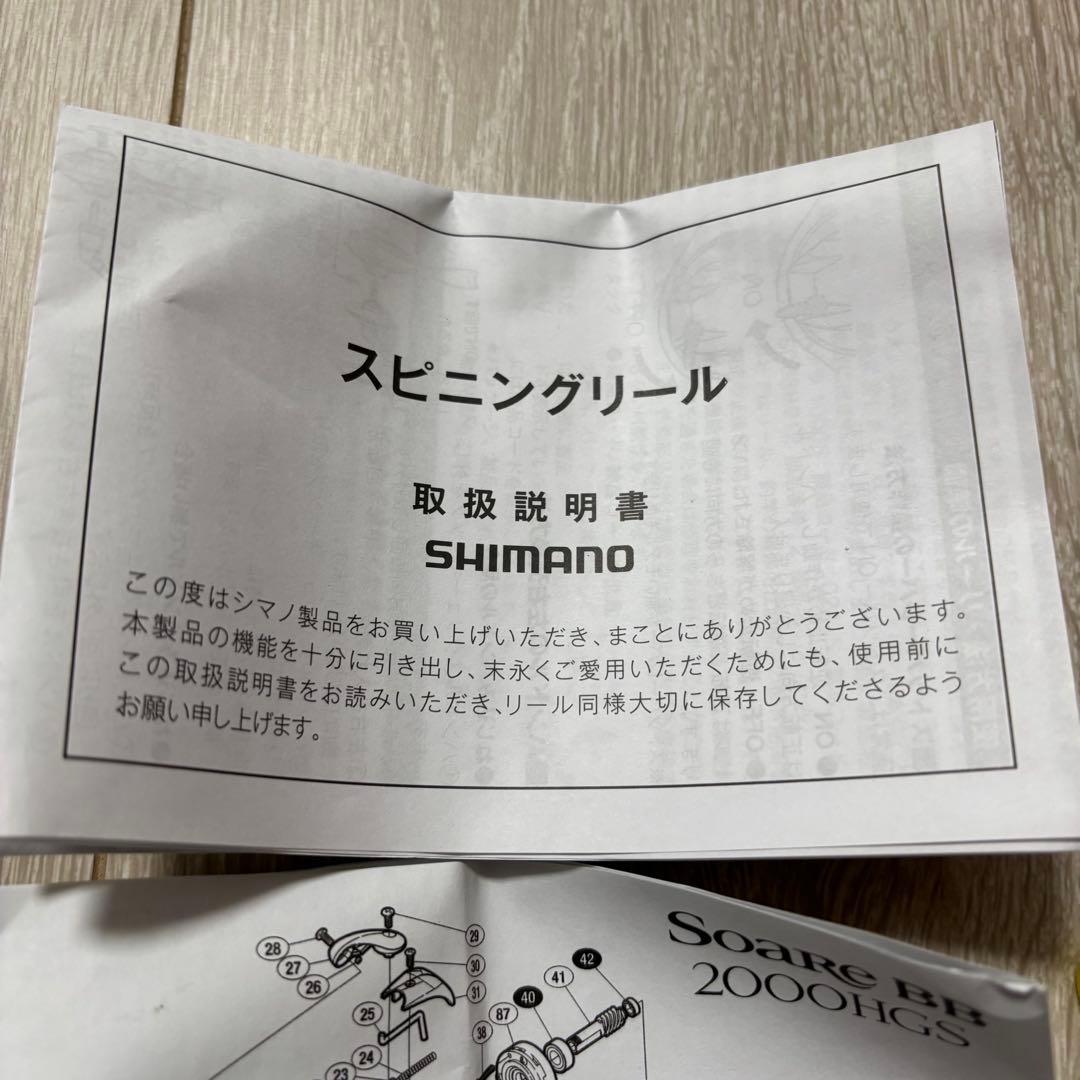 スピニングリール
取扱説明書
SHIMANO
この度はシマノ製品をお買い上げいただき、まことにありがとうございます。
本製品の機能を十分に引き出し、末永くご愛用いただくためにも、使用前に
この取扱説明書をお読みいただき、リール同様大切に保存してくださるよう
お願い申し上げます。
Soare BB
2000HGS
28
27
26
29
30
31
25
24
23
42
41
40
87
38